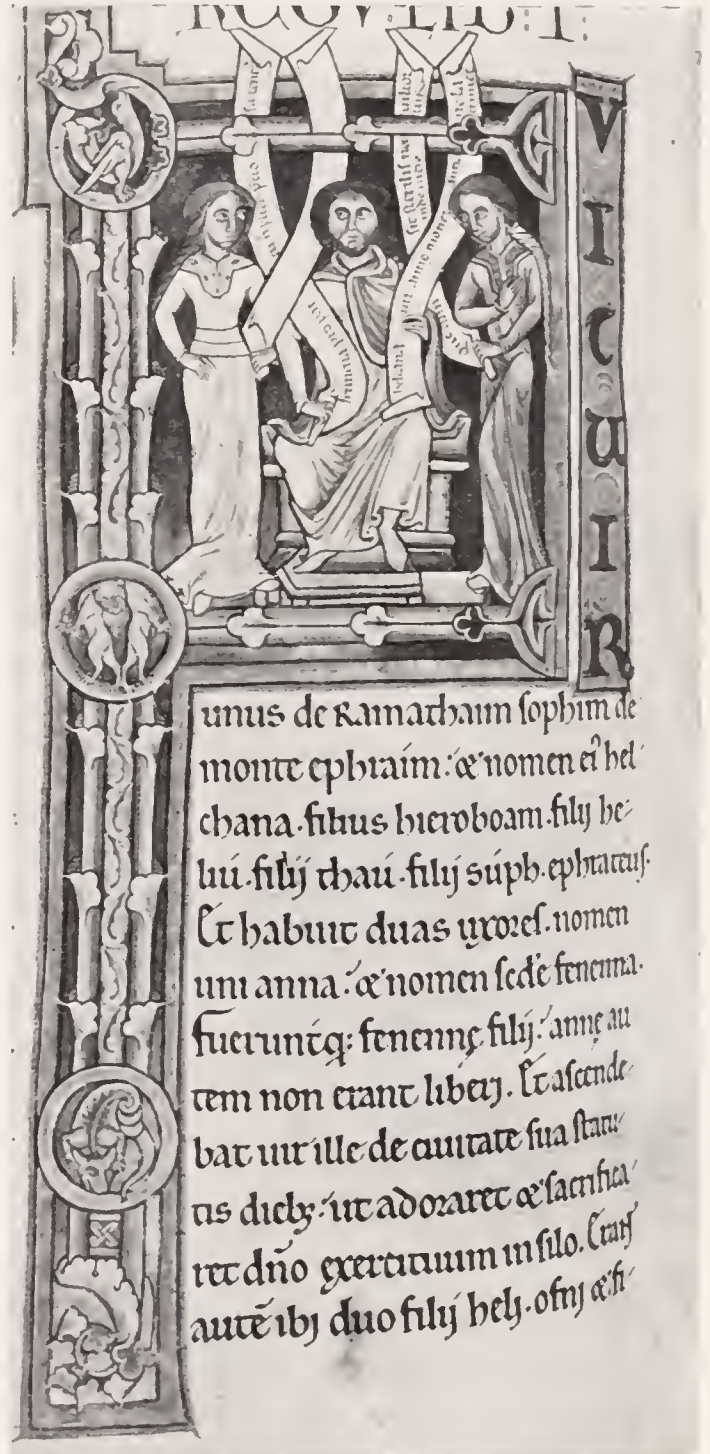 LIB I
F
VITUIR
unus de Ramathaim sophim de
monte ephraim: & nomen ei hel
chana. filius hieroboam. filij he
liu. filij thau. filij suph. ephrateus.
Et habuit duas uxores. nomen
uni anna: & nomen secde fenenna.
fueruntq; fenennę filij: annę au
tem non erant liberj. Et ascende
bat uir ille de ciuitate sua statu
tis dieb;: ut adoraret & sacrifica
ret dño exercituum in silo. Erant
autē ibj duo filij helj. ofnj & fi